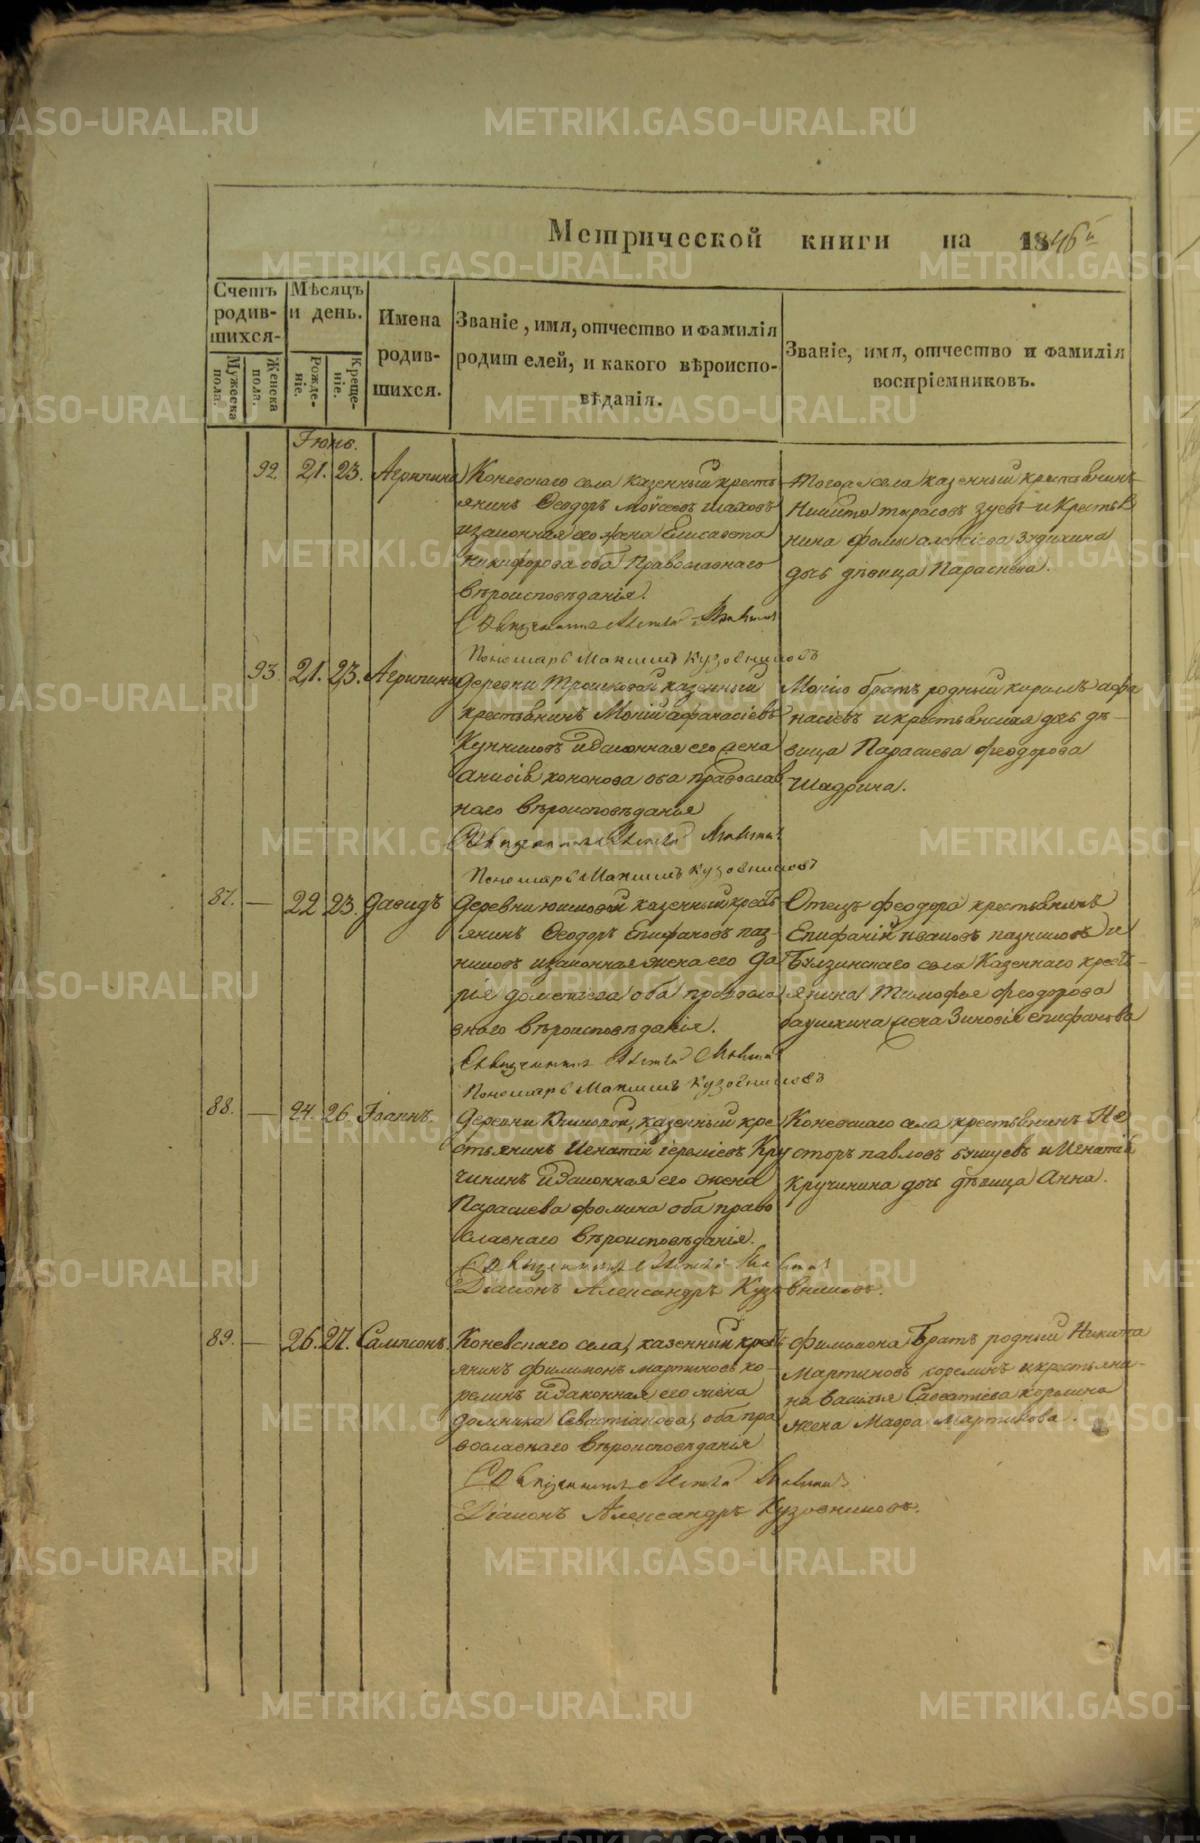 METRIKI.GASO-URAL.RU
Метрической книги на 1846й
Счетъ родив-шихся.
Мѣсяцъ и день.
Имена родив-шихся.
Званіе, имя, отчество и фамилія родителей, и какого вѣроиспо-вѣданія.
Званіе, имя, отчество и фамилія воспріемниковъ.
Мужеска пола.
Женска пола.
Рожде-ніе.
Креще-ніе.
Іюнь.
92. 21. 23. Агрипина
Коневскаго села казенный кресть
янинъ Ѳеодоръ Моѵсеевъ
изаконная его жена Елисавета
Никифорова оба Православнаго
вѣроисповѣданія.
Пономарь Максимъ Кузовниковъ
тогоже села казенный крестьянинъ
Никита тарасовъ зуевъ и Крестья
нина фомы алексіева
дочь дѣвица Параскева.
93. 21. 23. Агрипина
Деревни казенный
крестьянинъ Мокій афанасіевъ
изаконная его жена
Анисія кононова оба православ
наго вѣроисповѣданія
Пономарь Максимъ Кузовниковъ
Мокія братъ родный кирилъ афа
насіевъ икрестьянская дочь дѣ–
вица Параскева феодорова
Шадрина.
87. — 22 23. Давидъ
Деревни казенный крест
янинъ Ѳеодоръ Епифановъ паз–
никовъ изаконная жена его Да
рья оба правосла
внаго вѣроисповѣданія.
Пономарь Максимъ Кузовниковъ
Отецъ феодора крестьянинъ
Епифаній ивановъ пазниковъ и
села Казеннаго кресть–
янина Тимофея феодорова
жена Зиновія епифанова
88. — 24. 26. Іоаннъ.
Деревни казенный кре
стьянинъ Игнатій іереміевъ Кру
чининъ изаконная его жена
Параскева фомина оба право
славнаго вѣроисповѣданія.
Діаконъ Александръ Кузовниковъ.
Коневскаго села крестьянинъ Не
сторъ павловъ и Игнатій
Кручинина дочь дѣвица Анна.
89. — 26. 27. Сампсонъ.
Коневскаго села, казенный крест
янинъ филимонъ мартиновъ ко–
релинъ изаконная его жена
домника Севастіанова, оба пра
вославнаго вѣроисповѣданія
Діаконъ Александръ Кузовниковъ.
филимона Братъ родный Никита
Мартиновъ корелинъ икрестьяни–
на василья Савватіева корелина
жена Мавра Мартинова.